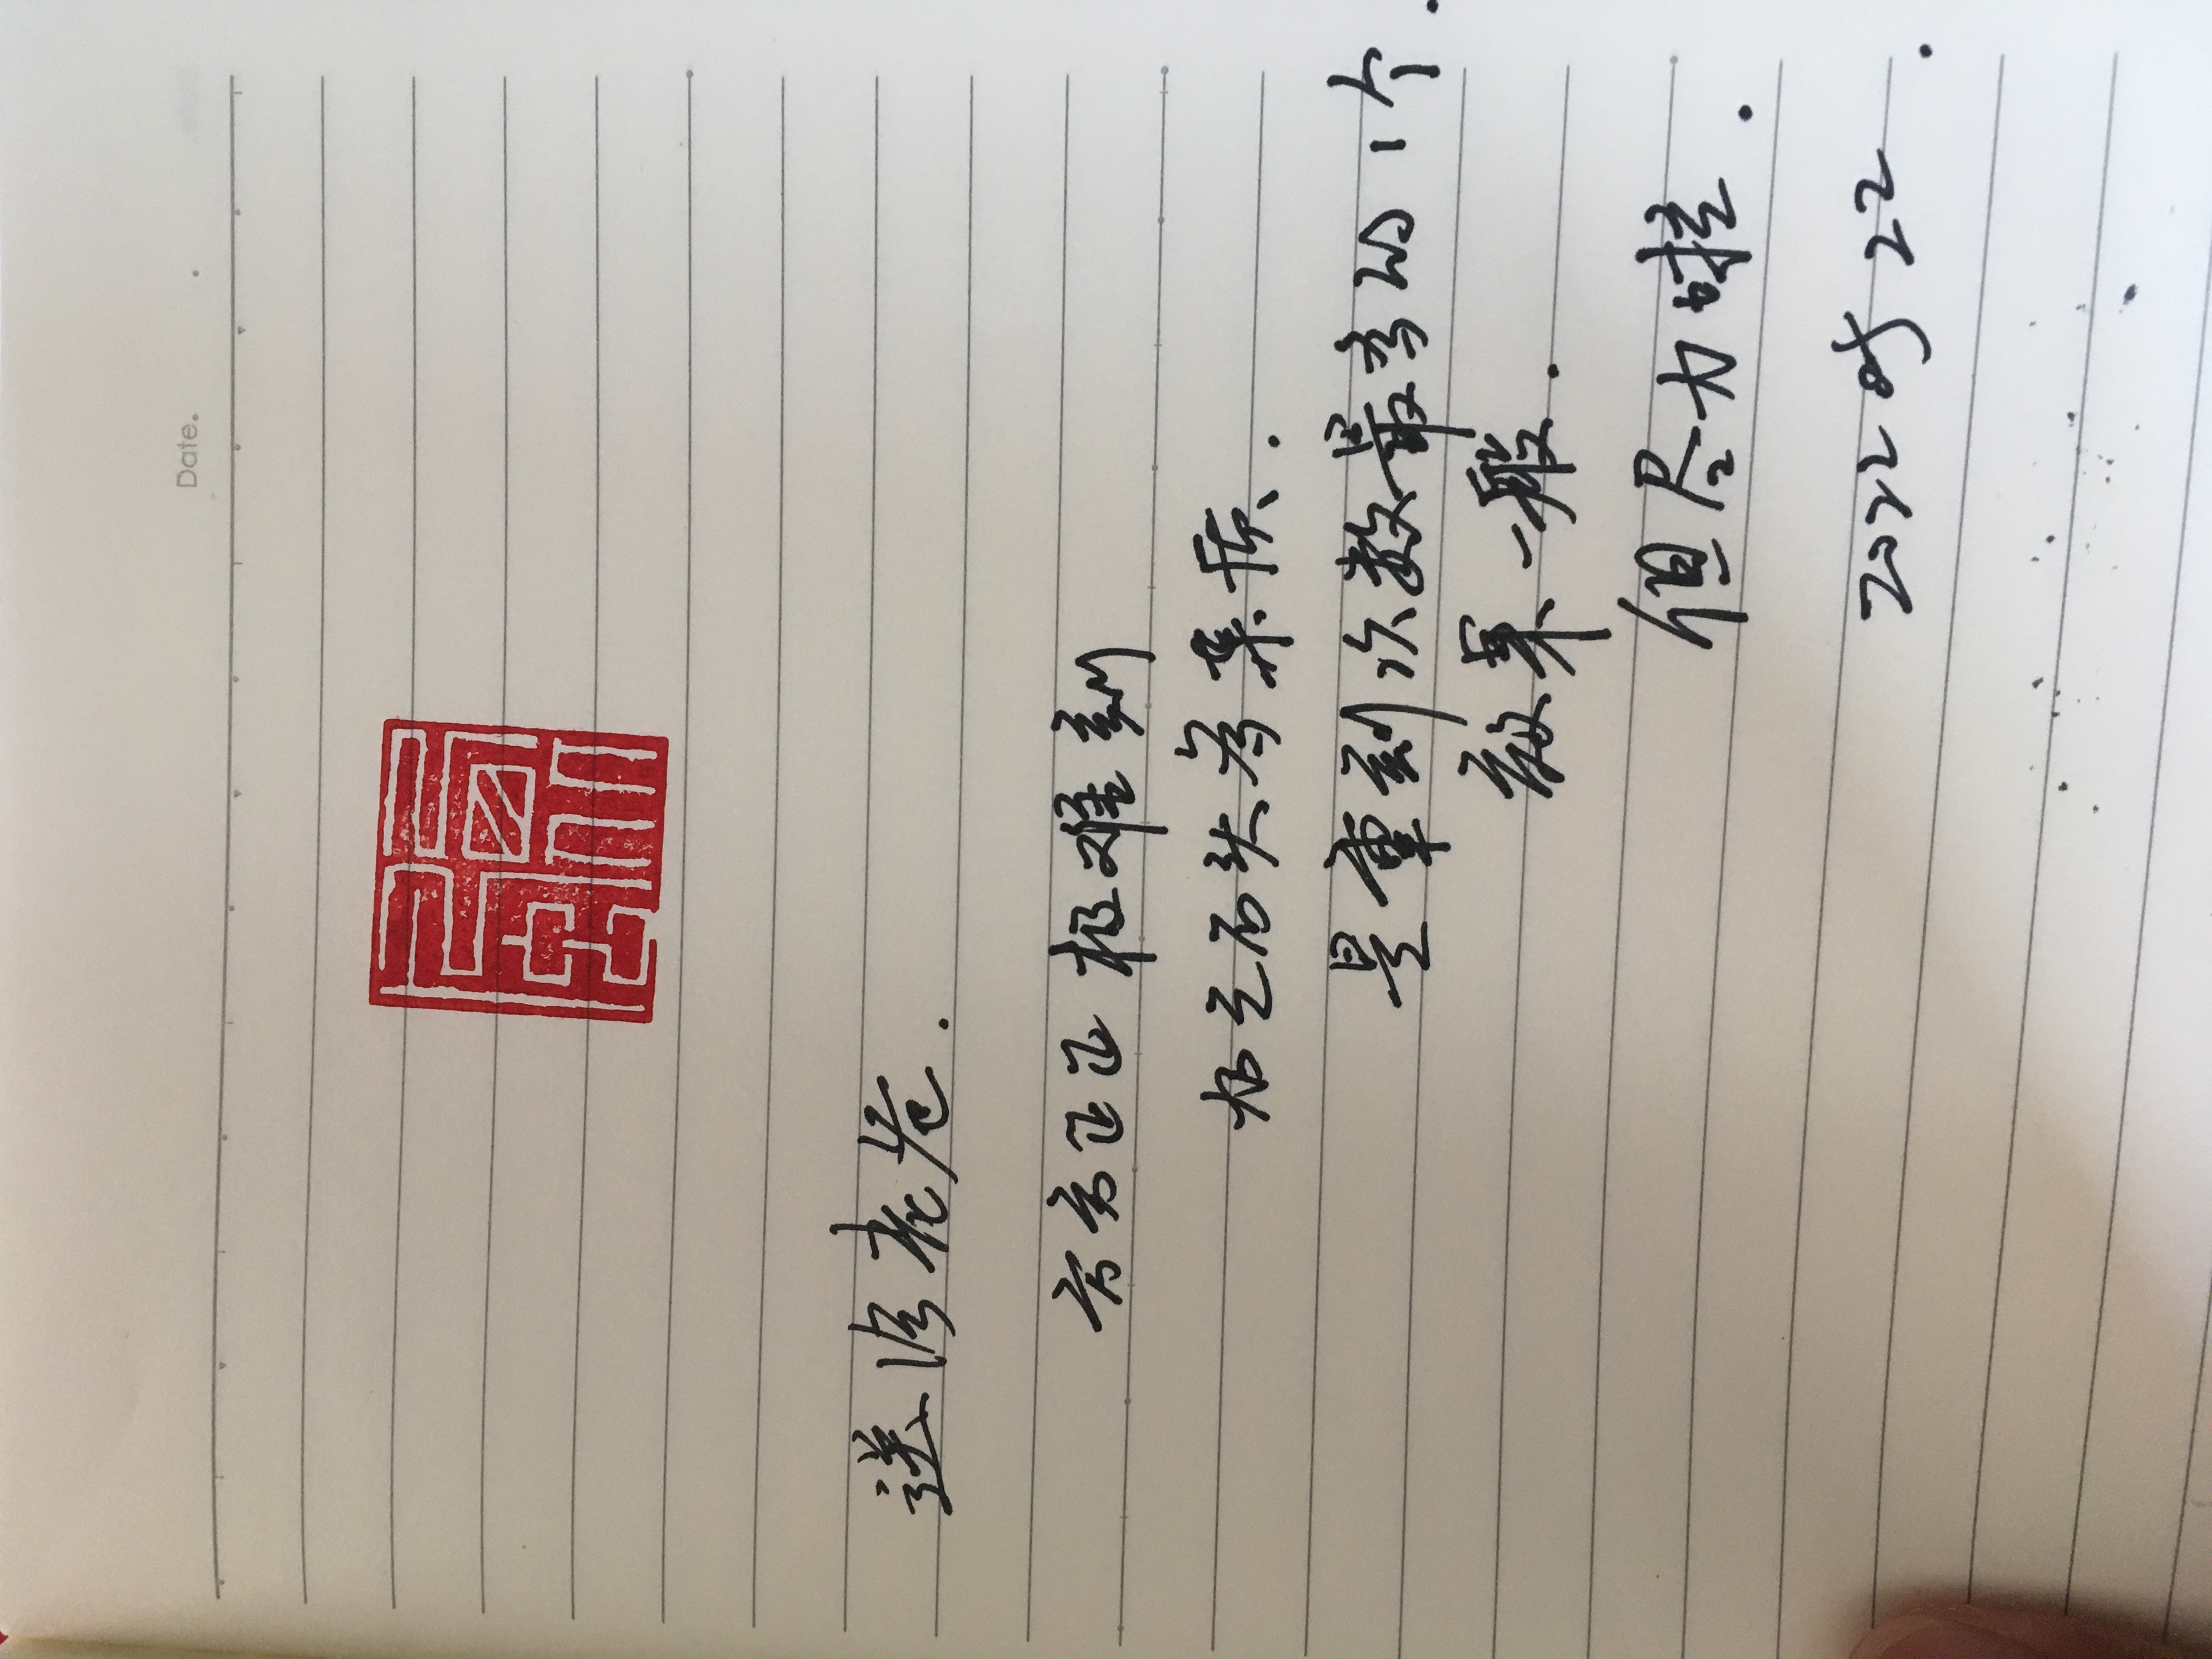 Date.
送给老苍.
方方正正极难刻
加之石头多杂质.
是重刻次数最多的1个.
效果一般.
但尽力啦.
2022 05 22.